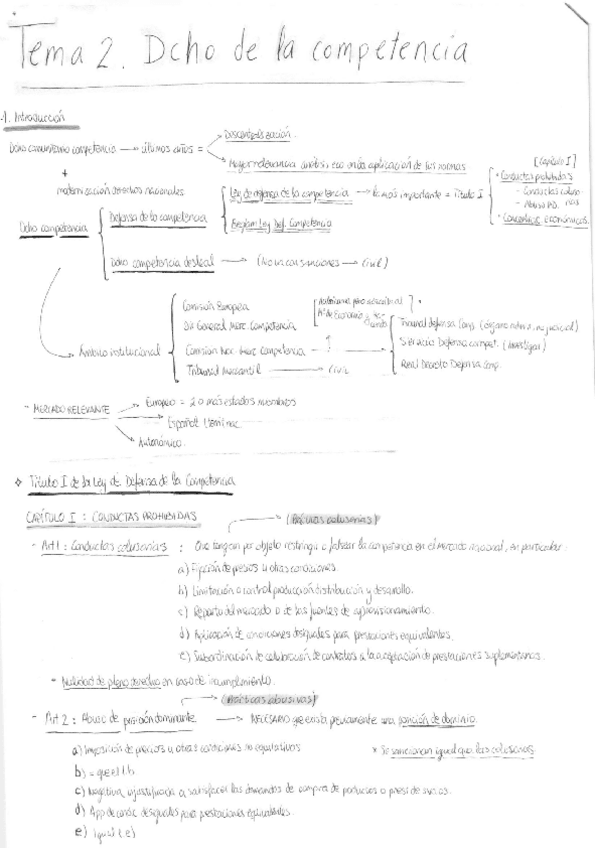 Tema 2. Dcho de la competencia
1. Introducción
Dcho comunitario competencia → últimos años =
Descentralización.
Mayor relevancia análisis eco en la aplicación de las normas
+
modernización derechos nacionales
Dcho competencia
Defensa de la competencia
Ley de defensa de la competencia → lo más importante = Título I
[Capítulo I]
• Conductas prohibidas
- Conductas colusorias
- Abuso P.D.
• Concentrac. económicas.
Reglam Ley Def. Competencia
Dcho competencia desleal → (No incon sanciones → Civil)
Ámbito institucional
Comisión Europea
Dir General Merc Competencia
Comisión Nac. Merc Competencia →
Tribunal Mercantil → Civil
Tribunal defensa Comp. (órgano admin, no judicial)
Servicio Defensa compet. (investigar)
Real Decreto Defensa Comp.
- MERCADO RELEVANTE
→ Europeo = 2 o más estados miembros
→ Español
→ Autonómico.
❖ Título I de la Ley de Defensa de la Competencia
CAPÍTULO I : CONDUCTAS PROHIBIDAS
(Prácticas colusorias)
- Art 1 : Conductas colusorias : Que tengan por objeto restringir o falsear la competencia en el mercado nacional, en particular:
a) Fijación de precios u otras condiciones.
b) Limitación o control producción distribución y desarrollo.
c) Reparto del mercado o de las fuentes de aprovisionamiento.
d) Aplicación de condiciones desiguales para prestaciones equivalentes.
e) Subordinación de celebración de contratos a la aceptación de prestaciones suplementarias.
- Nulidad de pleno derecho en caso de incumplimiento.
(Prácticas abusivas)
- Art 2 : Abuso de posición dominante → Necesario que exista previamente una posición de dominio.
a) Imposición de precios u otras condiciones no equitativos
* Se sancionan igual que las colusorias
b) = que el 1.b
c) Negativa injustificada a satisfacer las demandas de compra de productos o prest de svcos.
d) App de condic desiguales para prestaciones equivalentes.
e) igual (e)